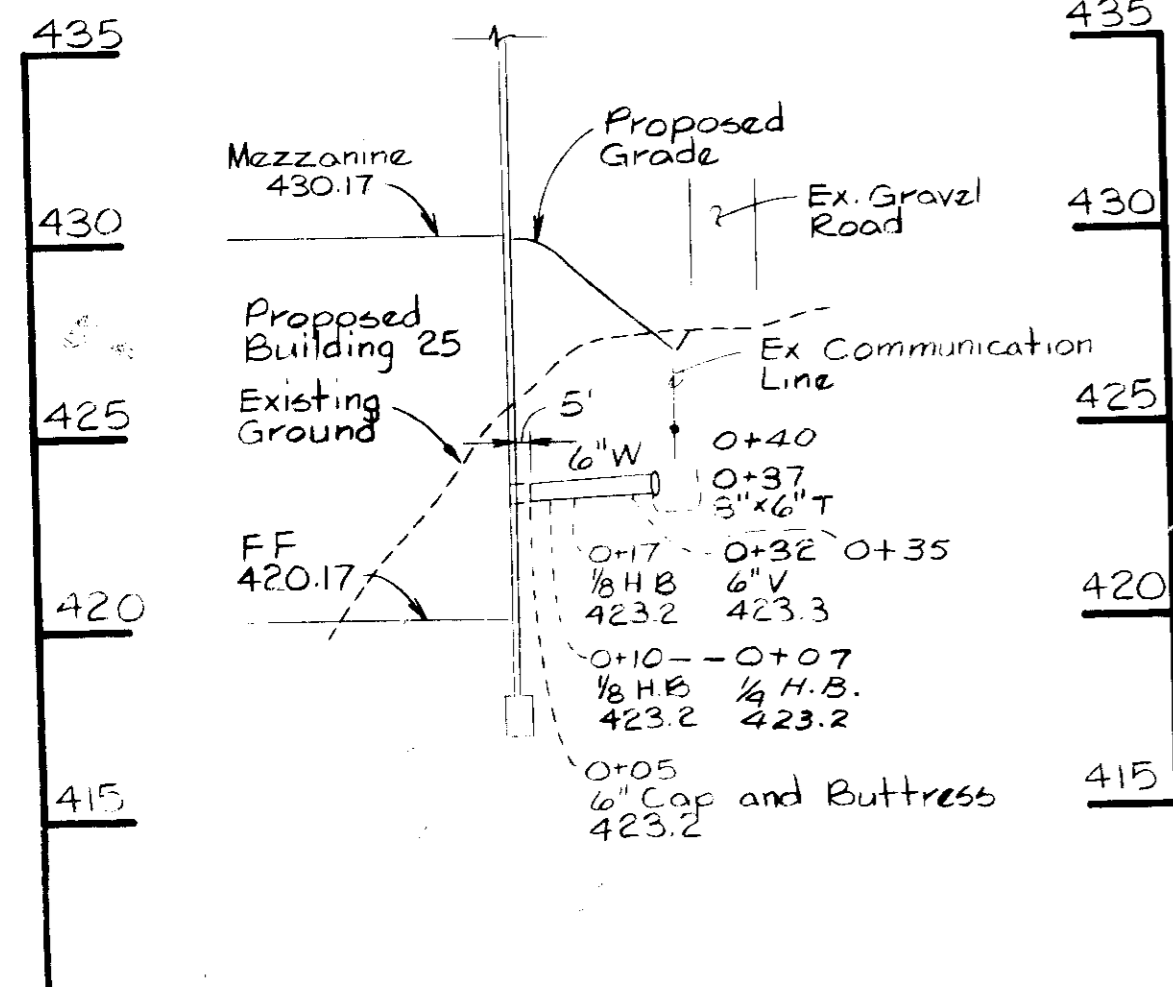 435
435
Mezzanine
430.17
Proposed
Grade
Ex. Gravel
Road
430
430
Proposed
Building 25
Ex Communication
Line
Existing
Ground
425
425
5'
6"W
0+40
0+37
8"x6"T
FF
420.17
0+17
1/8 H B
423.2
0+32
6"V
423.3
0+35
420
420
0+10
1/8 H.B
423.2
0+07
1/4 H.B.
423.2
0+05
6" Cap and Buttress
423.2
415
415